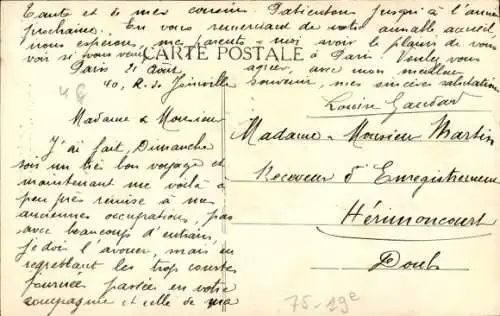 Tante et à mes cousins. Patientons jusqu'à l'année
prochaine. En vous remerciant de votre aimable accueil,
nous espérons, mes parents & moi avoir le plaisir de vous
voir si vous venez à Paris. Veuillez vous
CARTE POSTALE
agréer, avec mon meilleur
souvenir, mes sincères salutations
Louise Gaudard
Paris 21 Août
40, R. de Joinville
Madame & Monsieur
J'ai fait, Dimanche
soir un très bon voyage et
maintenant me voilà à
peu près remise à mes
anciennes occupations, pas
avec beaucoup d'entrain,
je dois l'avouer, mais en
regrettant les trop courtes
journées passées en votre
compagnie et celle de ma
Madame & Monsieur Martin
Receveur d'Enregistrement
Hérimoncourt
Doubs
75-19e